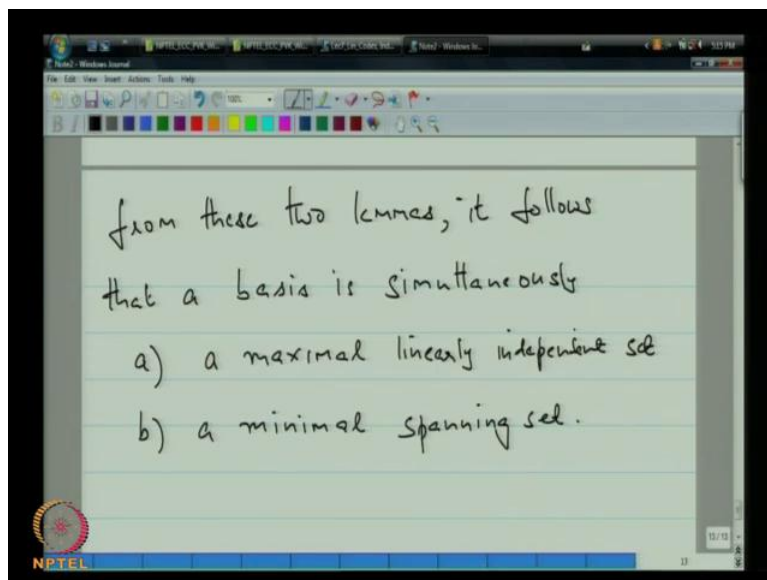 Note2 - Windows Journal
File Edit View Insert Actions Tools Help
from these two lemmas, it follows
that a basis is simultaneously
a) a maximal linearly independent set
b) a minimal spanning set.
13/13
13
NPTEL